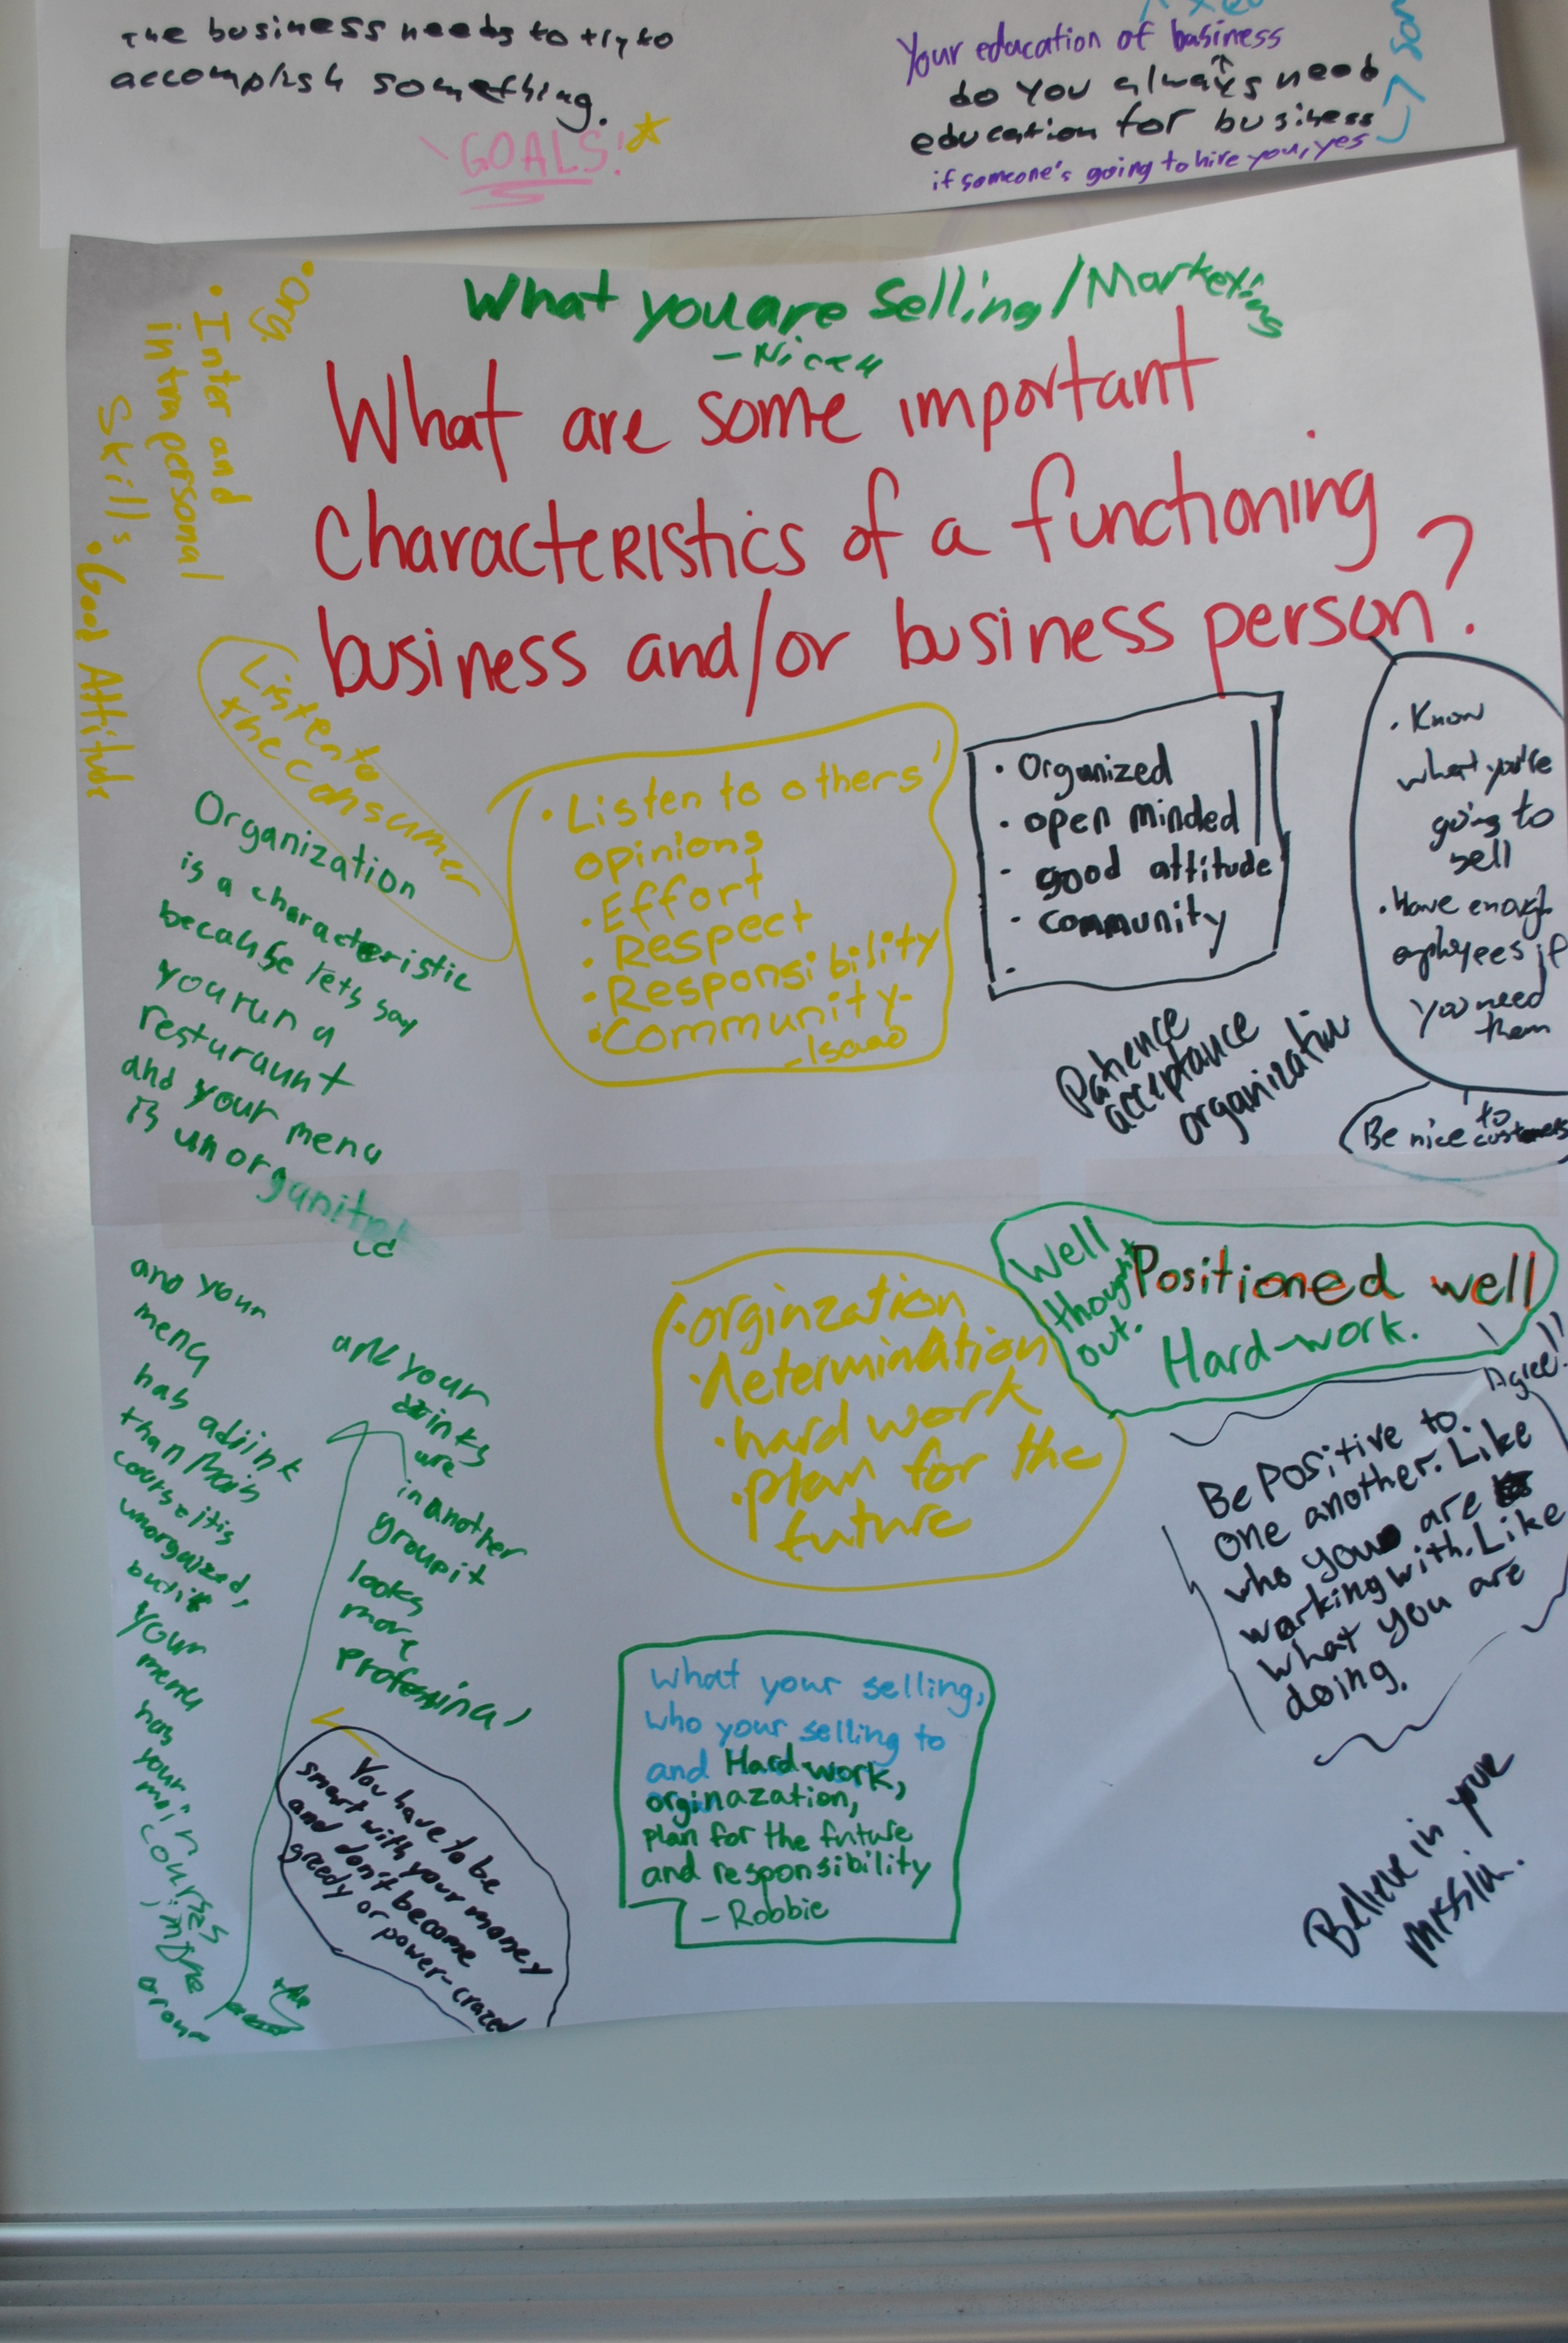 The business needs to try to
accomplish something.
GOALS!
Your education of business
do you always need
education for business
if someone's going to hire you, yes
What you are Selling/Marketing
What are some important
characteristics of a functioning
business and/or business person?
• Org.
• Inter and
intrapersonal
Skills
• Good Attitude
Listen to
the consumer
• Listen to others'
opinions
• Effort
• Respect
• Responsibility
• Community-
- Isaac
• Organized
• open minded
- good attitude
- community
-
. Know
what you're
going to
sell
. Have enough
employees if
you need
them
Be nice to
customers
Patience
acceptance
organization
Organization
is a characteristic
because lets say
you run a
resturaunt
and your menu
is unorganitzed
and your
menu
has a drink
than Main
course it is
unorganized,
but if
your
menu
has
your
main
courses
in one
and your
drinks
are
in another
group it
looks
more
Professinal
You have to be
smart with your money
and don't become
greedy or power-crazed
• orginzation
• determination
• hard work
• plan for the
future
Well
thought
out.
Positioned well
Hard-work.
Agree!!
Be Positive to
one another. Like
who you are
working with. Like
what you are
doing.
what your selling,
who your selling to
and Hard work,
orginazation,
plan for the future
and responsibility
- Robbie
Believe in your
missin.